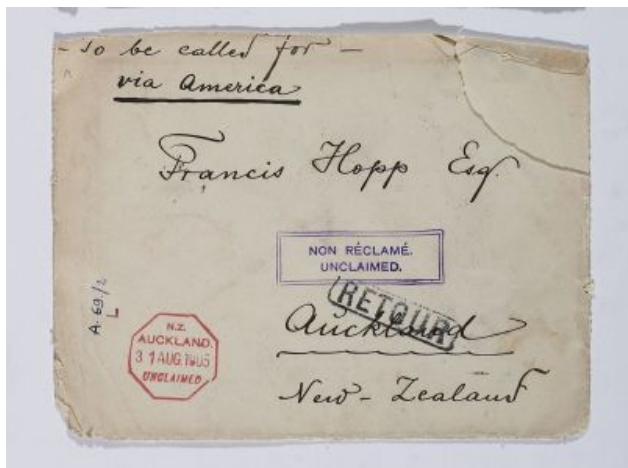 - To be called for -
via America
Francis Hopp Esq.
NON RÉCLAMÉ.
UNCLAIMED.
RETOUR
Auckland
New-Zealand
A. 69./2
L
N.Z.
AUCKLAND.
31 AUG.1905
UNCLAIMED